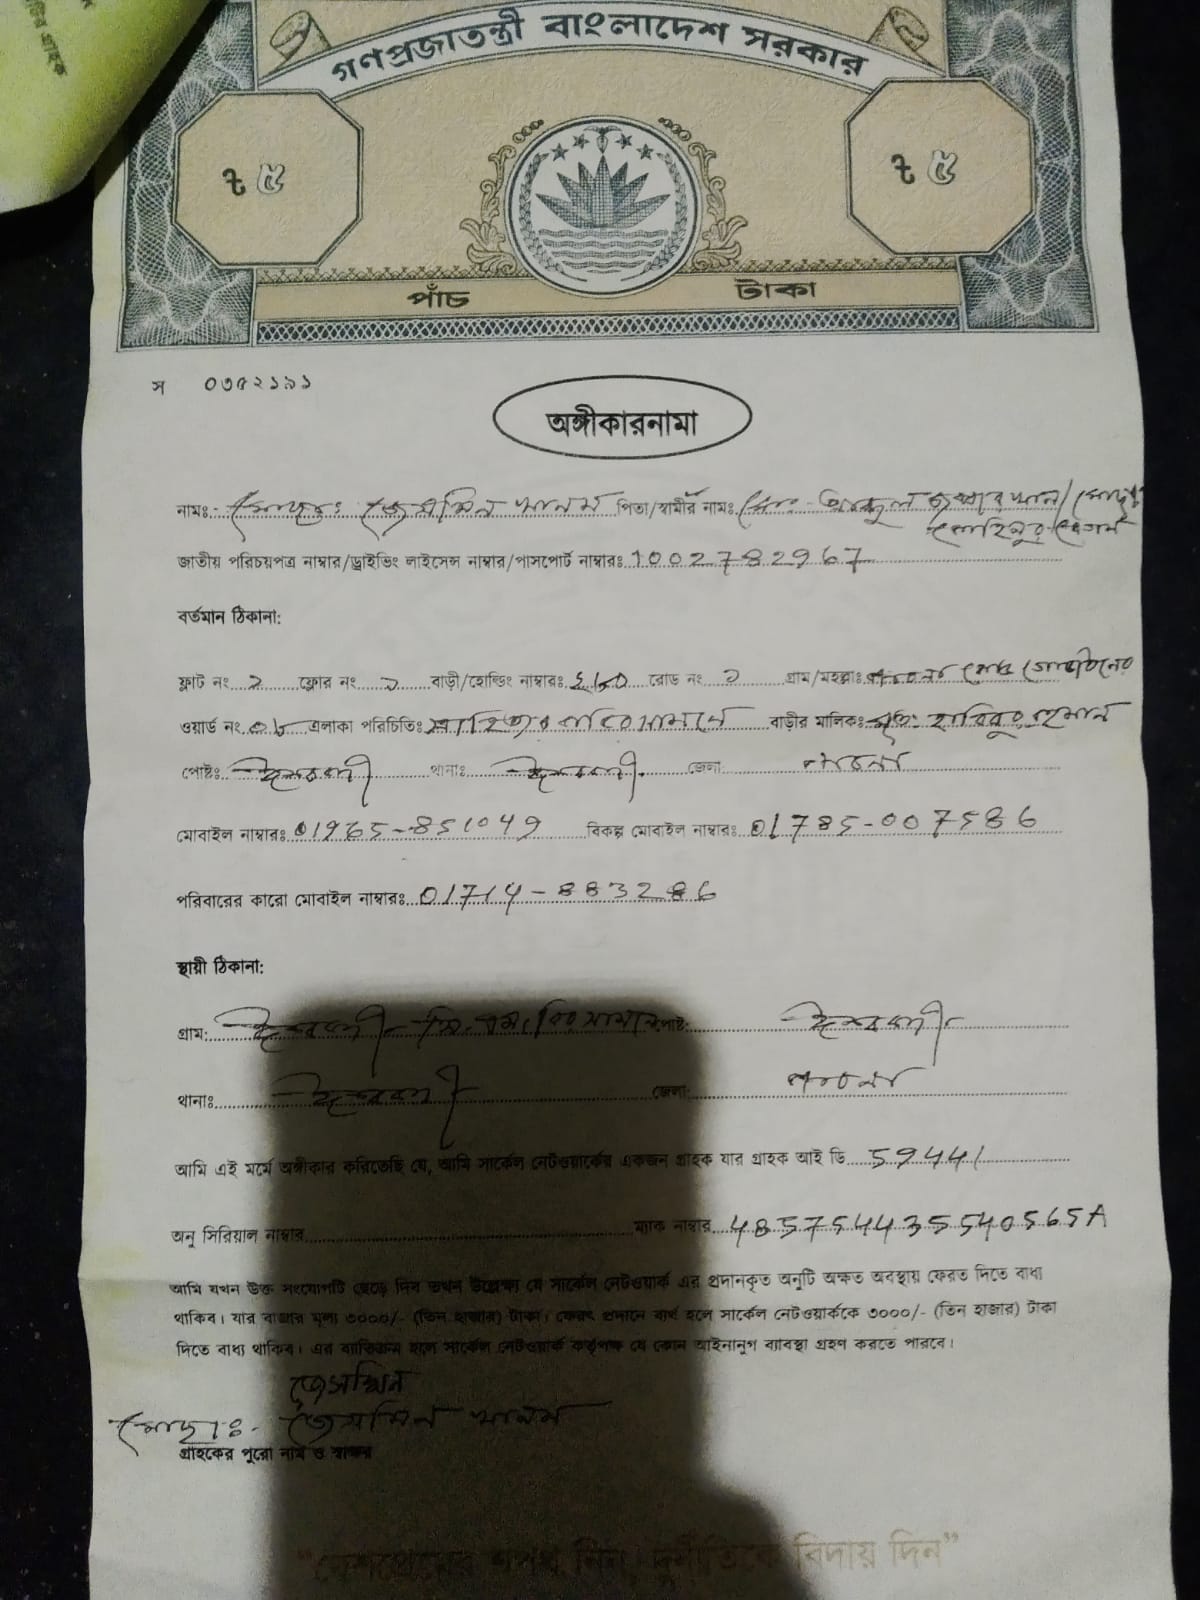 গণপ্রজাতন্ত্রী বাংলাদেশ সরকার
৳ ৫ ৳ ৫
পাঁচ টাকা
স ০৩৫২১৯১
অঙ্গীকারনামা
নামঃ- মোছাঃ জেসমিন খানম পিতা/স্বামীর নামঃ মোঃ আব্দুল জব্বার খান/মোছাঃ
কোহিনুর বেগম
জাতীয় পরিচয়পত্র নাম্বার/ড্রাইভিং লাইসেন্স নাম্বার/পাসপোর্ট নাম্বারঃ 1002782967
বর্তমান ঠিকানা:
ফ্লাট নং ২ ফ্লোর নং বাড়ী/হোল্ডিং নাম্বারঃ রোড নং গ্রাম/মহল্লাঃ
ওয়ার্ড নং এলাকা পরিচিতিঃ বাড়ীর মালিকঃ মৃতঃ হাবিবুর রহমান
পোষ্টঃ ঈশ্বরদী থানাঃ ঈশ্বরদী জেলা: পাবনা
মোবাইল নাম্বারঃ 01965-851049 বিকল্প মোবাইল নাম্বারঃ 01785-007586
পরিবারের কারো মোবাইল নাম্বারঃ 01714-883286
স্থায়ী ঠিকানা:
গ্রাম: ঈশ্বরদী পোষ্ট: ঈশ্বরদী
থানাঃ ঈশ্বরদী জেলা: পাবনা
আমি এই মর্মে অঙ্গীকার করিতেছি যে, আমি সার্কেল নেটওয়ার্কের একজন গ্রাহক যার গ্রাহক আই ডি 59441
অনু সিরিয়াল নাম্বার ম্যাক নাম্বার 485754435540565A
আমি যখন উক্ত সংযোগটি ছেড়ে দিব তখন উল্লেক্ষ্য যে সার্কেল নেটওয়ার্ক এর প্রদানকৃত অনুটি অক্ষত অবস্থায় ফেরত দিতে বাধ্য
থাকিব। যার বাজার মূল্য ৩০০০/- (তিন হাজার) টাকা। ফেরৎ প্রদানে ব্যর্থ হলে সার্কেল নেটওয়ার্ককে ৩০০০/- (তিন হাজার) টাকা
দিতে বাধ্য থাকিব। এর ব্যতিক্রম হলে সার্কেল নেটওয়ার্ক কর্তৃপক্ষ যে কোন আইনানুগ ব্যাবস্থা গ্রহণ করতে পারবে।
জেসমিন
মোছাঃ- জেসমিন খানম
গ্রাহকের পুরো নাম ও স্বাক্ষর
"দেশপ্রেমের শপথ নিন, দুর্নীতিকে বিদায় দিন"